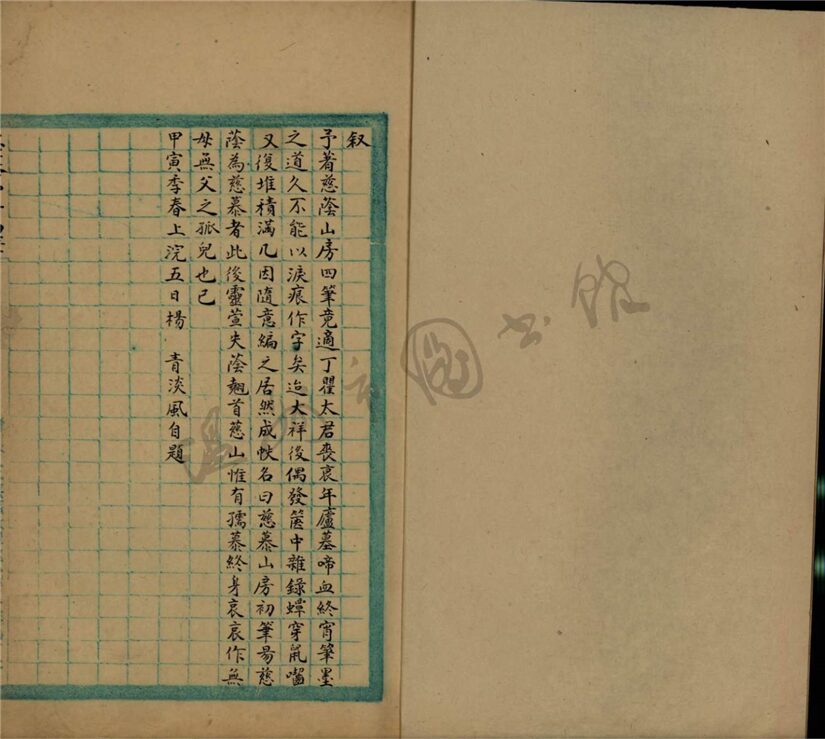 叙
予著慈蔭山房四筆竟適丁瞿太君喪哀年廬墓啼血終宵筆墨
之道久不能以淚痕作字矣迨大祥後偶發篋中雜錄蟫穿鼠嚙
又復堆積滿几因隨意編之居然成帙名曰慈慕山房初筆昜慈
蔭為慈慕者此後靈萱失蔭翹首慈山惟有孺慕終身哀哀作無
母無父之孤兒也已
甲寅季春上浣五日楊 青淡風自題
圖書館